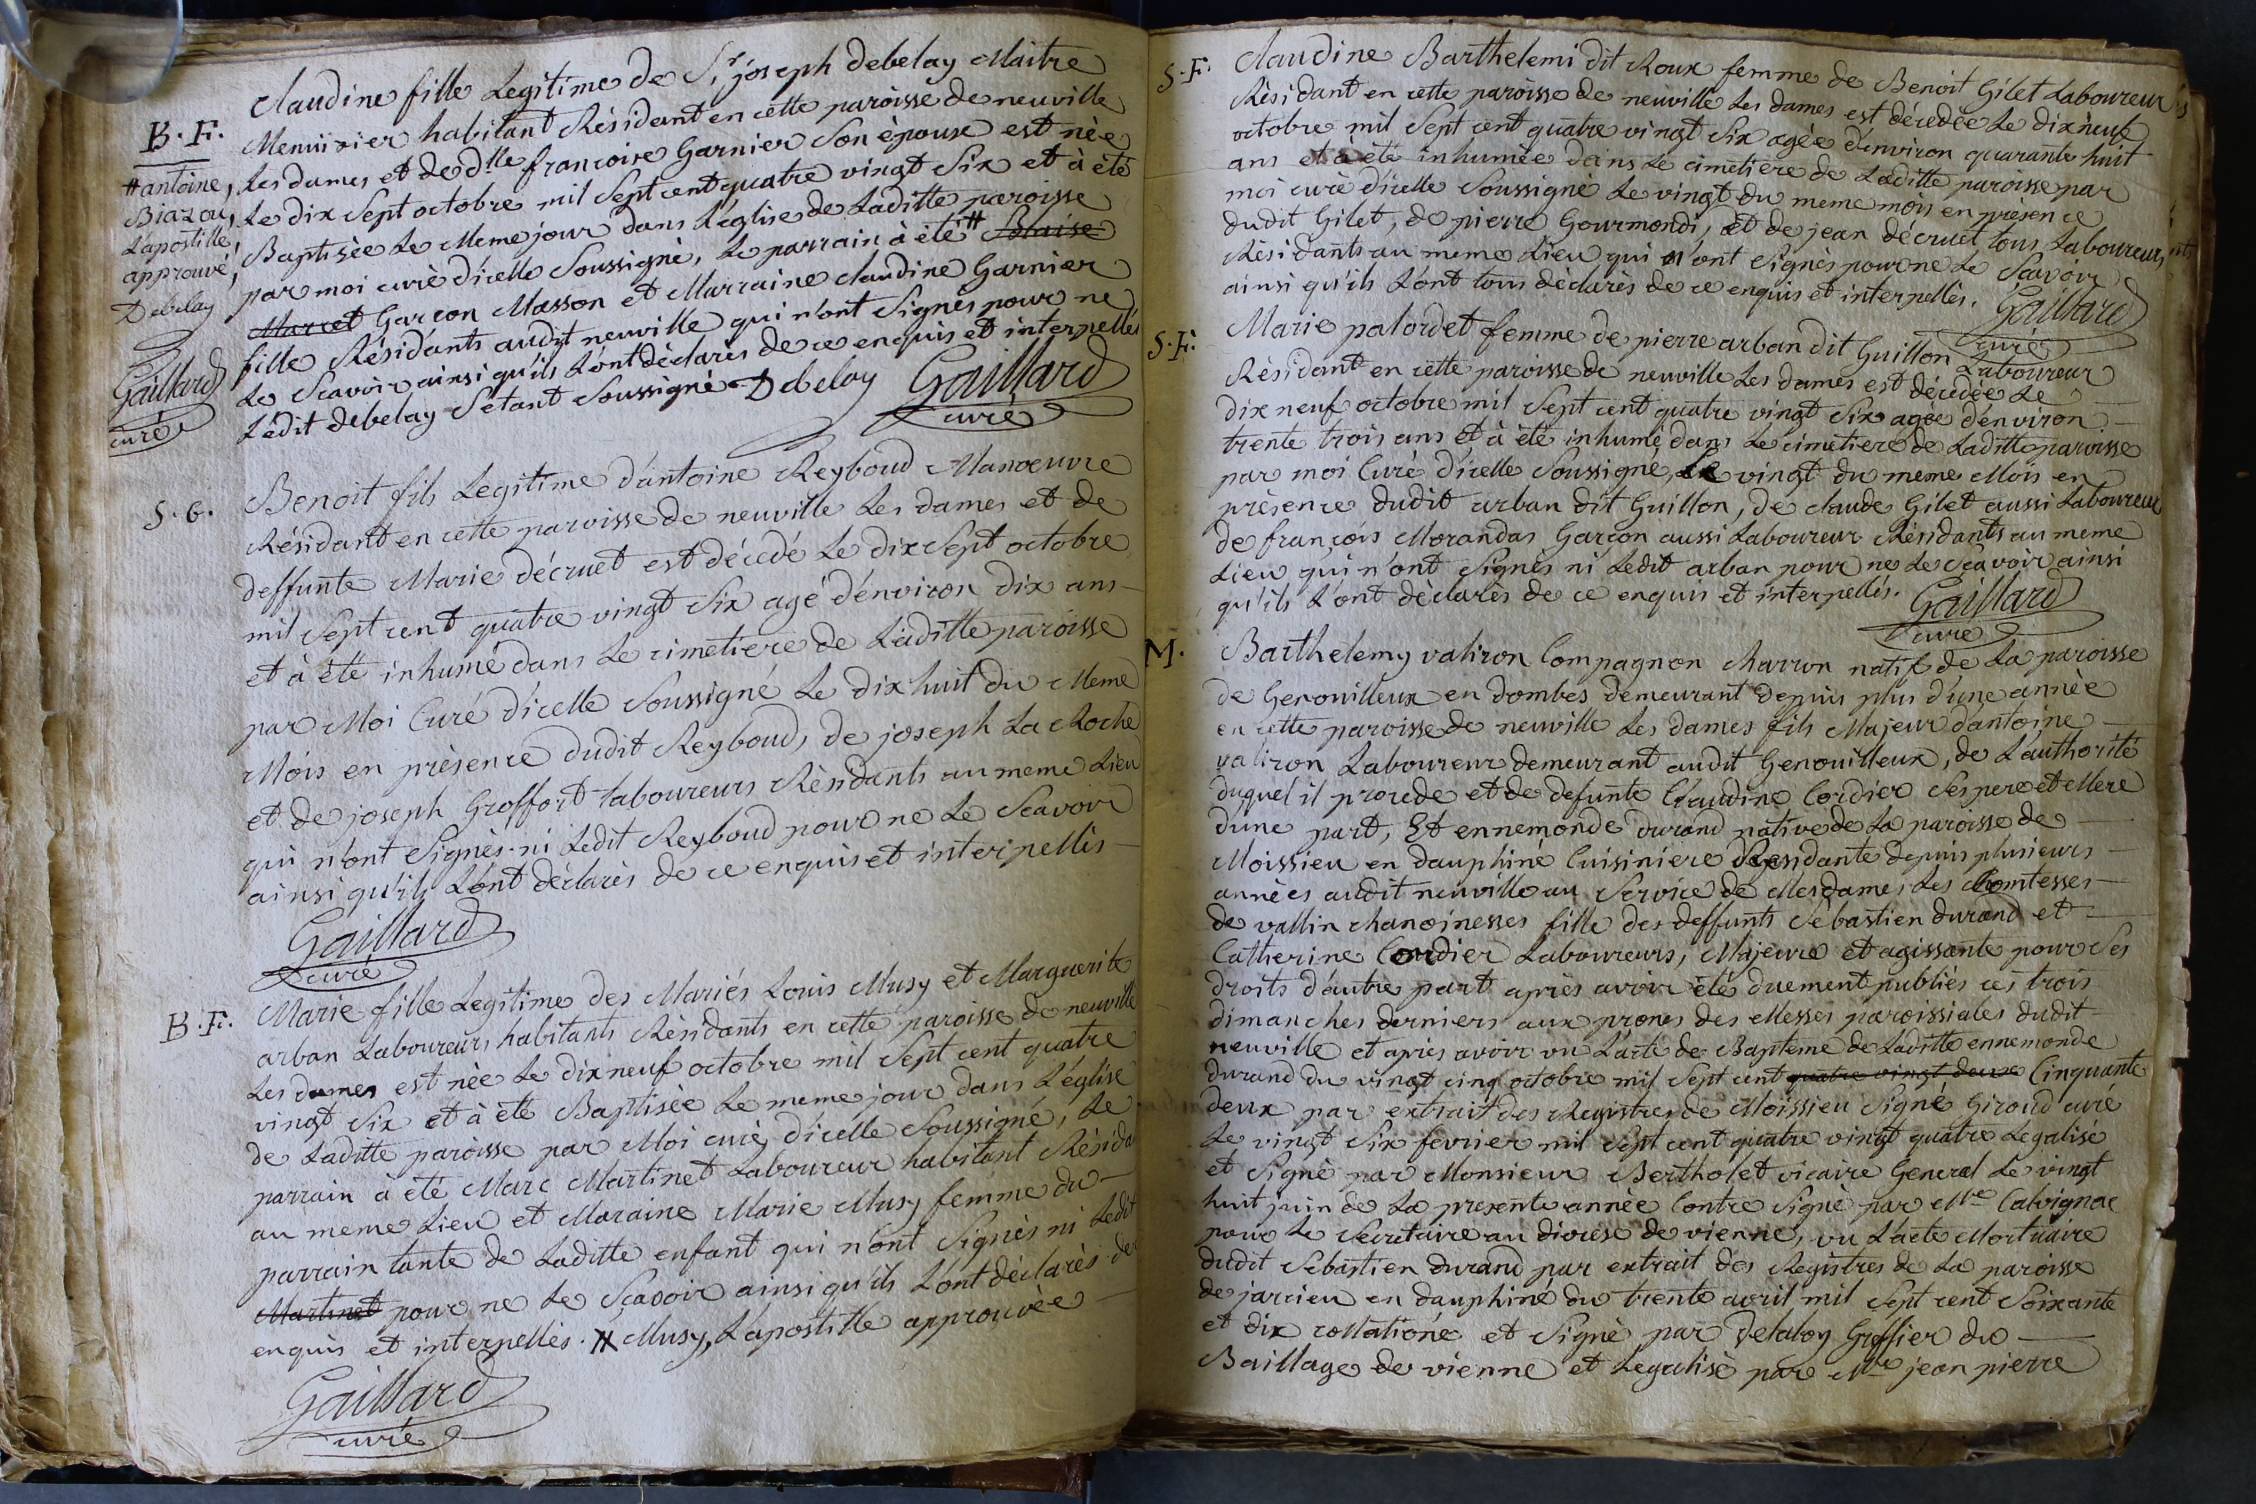 B. F.
# antoine,
Biazou,
L'apostille,
approuvé,
Debelay
Gaillard
curé
Claudine fille Legitime de Sr. joseph debelay Maitre
Menuisier habitant Résidant en cette paroisse de neuville
Les dames et de dlle francoise Garnier Son èpouse est née
Le dix Sept octobre mil Sept cent quatre vingt Six et à été
Baptisèe Le Meme jour dans L'église de Laditte paroisse
par moi curé d'icelle Soussigné, Le parrain à été # Blaise
Marcet Garcon Masson et Marraine Claudine Garnier
fille Résidants audit neuville qui n'ont Signès pour ne
Le Scavoir ainsi qu'ils L'ont dèclarès de ce enquis et interpellés
Ledit debelay S'etant Soussigné Debelay Gaillard
curé
S. G.
Benoit fils Legitime d'antoine Reyboud Manoeuvre
Résidant en cette paroisse de neuville Les dames et de
deffunte Marie décruet est décedé Le dix Sept octobre
mil Sept cent quatre vingt Six agé d'énviron dix ans
et à èté inhumé dans Le cimetiere de Laditte paroisse
par Moi Curé d'icelle Soussigné Le dix huit du Meme
Mois en présence dudit Reyboud, de joseph La Roche
et de joseph Groffort Laboureurs Rèsidants au meme Lieu
qui n'ont Signès ni Ledit Reyboud pour ne Le Scavoir
ainsi qu'ils L'ont déclarès de ce enquis et interpellés
Gaillard
curé
B. F.
Marie fille Legitime des Mariés Louis Musy et Marguerite
arban Laboureurs habitants Rèsidants en cette paroisse de neuville
Les dames est née Le dix neuf octobre mil Sept cent quatre
vingt Six et à été Baptisée Le meme jour dans L'église
de Laditte paroisse par Moi curé d'icelle Soussigné, Le
parrain à été Marc Martinet Laboureur habitant Résida
au meme Lieu et Maraine Marie Musy femme du
parrain tante de Laditte enfant qui n'ont Signès ni Ledit
Martinet pour ne Le Sçavoir ainsi qu'ils L'ont déclarès de
enquis et interpellés. # Musy, L'apostille approuvèe
Gaillard
curé
S. F.
Claudine Barthelemi dit Roux femme de Benoit Gilet Laboureur
Rèsidant en cette paroisse de neuville Les dames est décedée Le dix neuf
octobre mil Sept cent quatre vingt Six agée d'énviron quarante huit
ans et à été inhumèe dans Le cimetiere de Laditte paroisse par
moi curé d'icelle Soussigné Le vingt du meme mois en présence
dudit Gilet, de pierre Gourmondi, et de jean décruet tous Laboureurs
Résidants au meme Lieu qui n'ont Signès pour ne Le Scavoir
ainsi qu'ils L'ont tous déclarès de ce enquis et interpellés. Gaillard
curé
S. F.
Marie palordet femme de pierre arban dit Guillon Laboureur
Résidant en cette paroisse de neuville Les dames est décedée Le
dix neuf octobre mil Sept cent quatre vingt Six agée d'énviron
trente trois ans et à été inhumé dans Le cimetiere de Laditte paroisse
par moi Curé d'icelle Soussigné, Le vingt du meme Mois en
présence dudit arban dit Guillon, de claude Gilet aussi Laboureur
de françois Morandas Garçon aussi Laboureur Résidants au meme
Lieu qui n'ont Signés ni Ledit arban pour ne Le Scavoir ainsi
qu'ils L'ont dèclarès de ce enquis et interpellés. Gaillard
curé
M.
Barthelemy valiron Compagnon charron natif de La paroisse
de Genouilleux en dombes demeurant depuis plus d'une année
en cette paroisse de neuville Les dames fils Majeur d'antoine
valiron Laboureur demeurant audit Genouilleux, de L'authorité
duquel il procede et de defunte Claudine Cordier Ses pere et Mere
d'une part, Et ennemonde durand native de La paroisse de
Moissieu en dauphiné Cuisiniere Residante depuis plusieurs
années audit neuville au Service de Mesdames Les Comtesses
de vallin chanoinesses fille des deffunts Sébastien durand et
Catherine Cordier Laboureurs, Majeure et agissante pour Ses
droits d'autre part après avoir été duement publiés ces trois
dimanches derniers aux prones des Messes paroissiales dudit
neuville et après avoir vu L'acte de Bapteme de Laditte ennemonde
durand du vingt cinq octobre mil Sept cent quatre vingt deux Cinquante
deux par extrait des Registres de Moissieu Signé Giroud curé
Le vingt Six fevrier mil Sept cent quatre vingt quatre Legalisé
et Signé par Monsieur Bertholet vicaire General Le vingt
huit juin de La presente année Contre Signé par Me Calvignac
pour Le Secretaire au diocese de vienne, vu L'acte Mortuaire
dudit Sébastien durand par extrait des Registres de La paroisse
de jarcieu en dauphiné du trente avril mil Sept cent Soixante
et dix collationé et Signé par Delaloy Greffier du
Baillage de vienne et Legalisé par Mr jean pierre